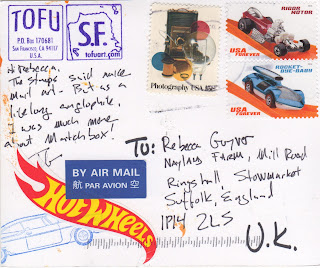 TOFU
P.O. Box 170681
San Francisco, CA 94117
U.S.A.
S.F.
tofuart.com
Hi Rebecca,
The stamps said make
mail art - But as a
lifelong anglophile,
I was much more
about Matchbox!
Photography USA 15c
RIGOR MOTOR
USA FOREVER
ROCKET-BYE-BABY
USA FOREVER
BY AIR MAIL
航空 PAR AVION
HOT WHEELS
To: Rebecca Guyver
Farm, Mill Road
Ringshall, Stowmarket
Suffolk, England
IP14 2LS
U.K.